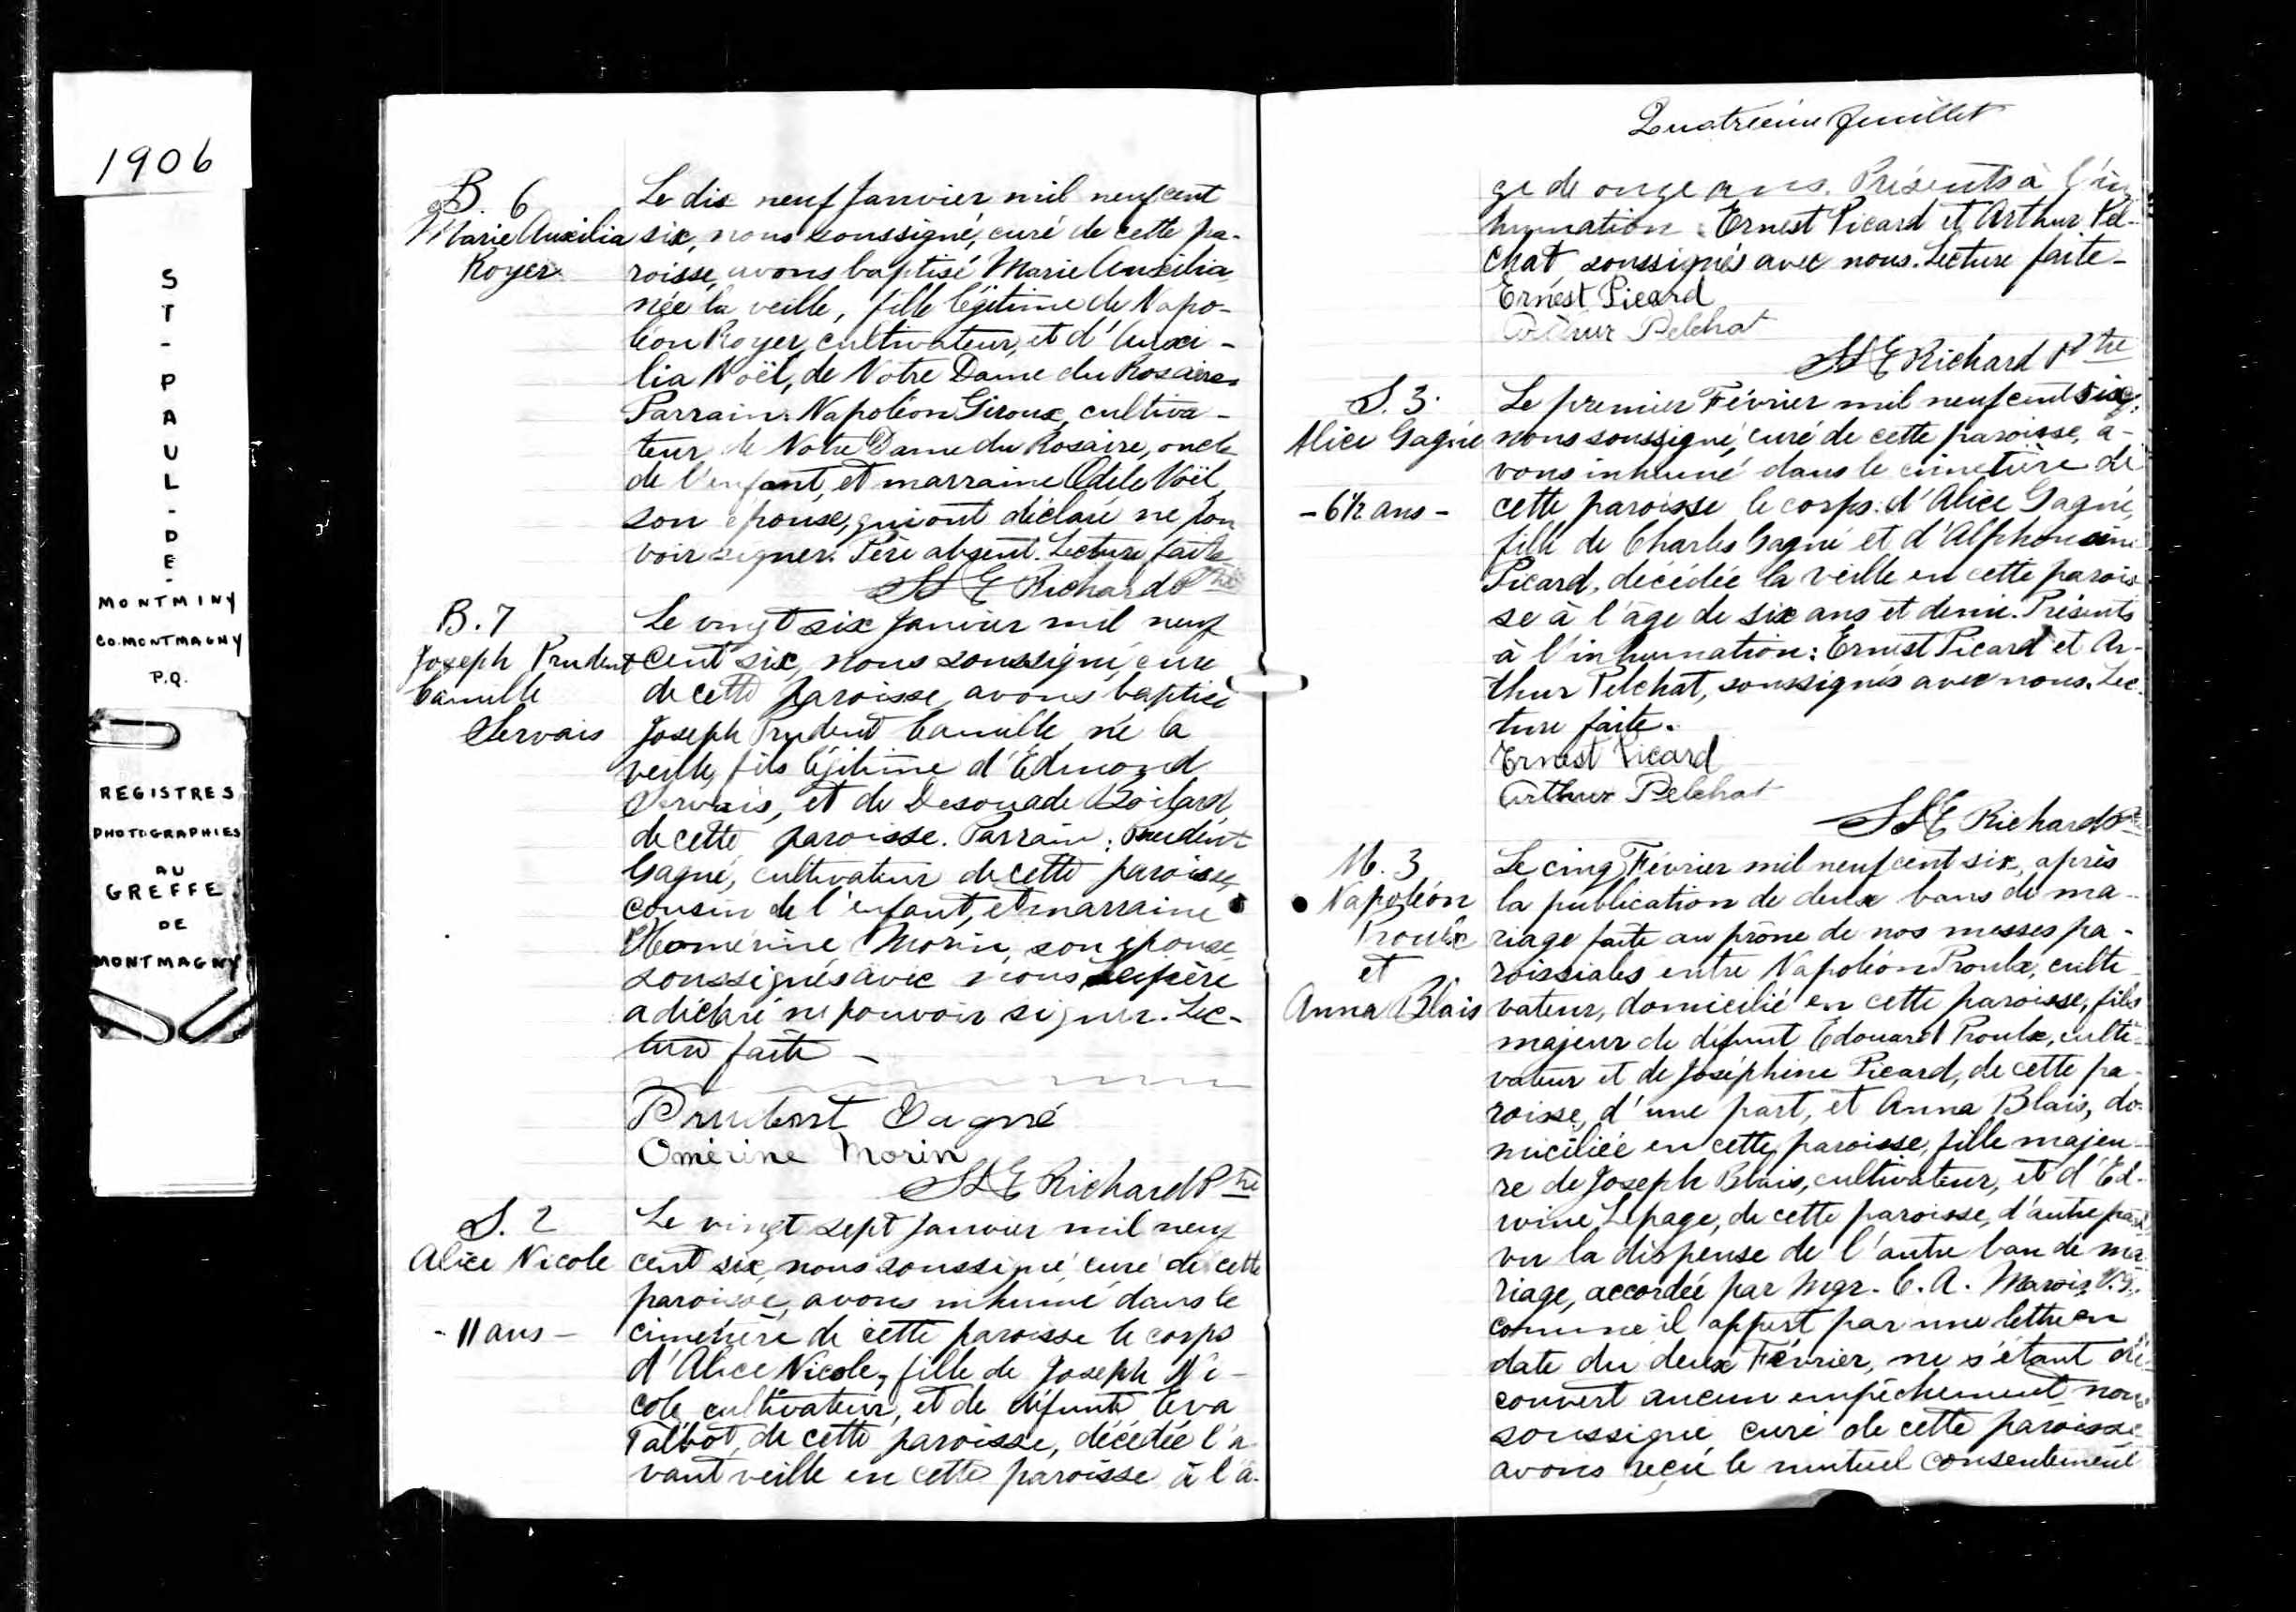 1906
ST-PAUL-DE-
MONTMINY
CO. MONTMAGNY
P.Q.
REGISTRES
PHOTOGRAPHIES
AU
GREFFE
DE
MONTMAGNY
B. 6
Marie Auxilia
Royer
Le dix neuf Janvier mil neuf cent
six, nous soussigné, curé de cette pa-
roisse, avons baptisé Marie Auxilia
née la veille, fille légitime de Napo-
léon Royer, cultivateur, et d'Auxi-
lia Noël, de Notre Dame du Rosaire.
Parrain: Napoléon Giroux, cultiva-
teur de Notre Dame du Rosaire, oncle
de l'enfant, et marraine Odile Noël,
son épouse, qui ont déclaré ne pou
voir signer. Père absent. Lecture faite
Richard Ptre
B. 7
Joseph Prudent
Camille
Servais
Le vingt six Janvier mil neuf
cent six, nous soussigné, curé
de cette paroisse, avons baptisé
Joseph Prudent Camille né la
veille, fils légitime d'Edmond
Servais, et de Boilard,
de cette paroisse. Parrain: Prudent
Gagné, cultivateur de cette paroisse,
cousin de l'enfant, et marraine
Homérine Morin, son épouse
soussignés avec nous, le père
a déclaré ne pouvoir signer. Lec-
ture faite -
Prudent Gagné
Omérine Morin
Richard Ptre
S. 2
Alice Nicole
- 11 ans -
Le vingt sept Janvier mil neuf
cent six, nous soussigné, curé de cette
paroisse, avons inhumé dans le
cimetière de cette paroisse le corps
d'Alice Nicole, fille de Joseph Ni-
cole cultivateur, et de défunte Eva
Talbot, de cette paroisse, décédée l'a-
vant veille en cette paroisse à l'â-
Quatrième feuillet
ge de onze ans. Présents à l'in
humation: Ernest Picard et Arthur Pel-
chat soussignés avec nous. Lecture faite -
Ernest Picard
Arthur Pelchat
Richard Ptre
S. 3.
Alice Gagné
- 6½ ans -
Le premier Février mil neuf cent six,
nous soussigné, curé de cette paroisse, a-
vons inhumé dans le cimetière de
cette paroisse le corps d'Alice Gagné,
fille de Charles Gagné et d'Alphonsine
Picard, décédée la veille en cette parois
se à l'âge de six ans et demie. Présents
à l'inhumation: Ernest Picard et Ar-
thur Pelchat, soussignés avec nous. Lec-
ture faite.
Ernest Picard
Arthur Pelchat
Richard Ptre
M. 3
Napoléon
Proulx
et
Anna Blais
Le cinq Février mil neuf cent six, après
la publication de deux bans de ma-
riage faite au prône de nos messes pa-
roissiales entre Napoléon Proulx, culti-
vateur, domicilié en cette paroisse, fils
majeur de défunt Edouard Proulx, culti-
vateur et de Joséphine Picard, de cette pa-
roisse, d'une part, et Anna Blais, do-
miciliée en cette paroisse, fille majeu-
re de Joseph Blais, cultivateur, et d'Ed-
wine Lepage, de cette paroisse, d'autre part
vu la dispense de l'autre ban de ma
riage, accordée par Mgr. C. A. Marois V.G.,
comme il appert par une lettre en
date du deux Février, ne s'étant dé-
couvert aucun empêchement nous
soussigné curé de cette paroisse
avons reçu le mutuel consentement